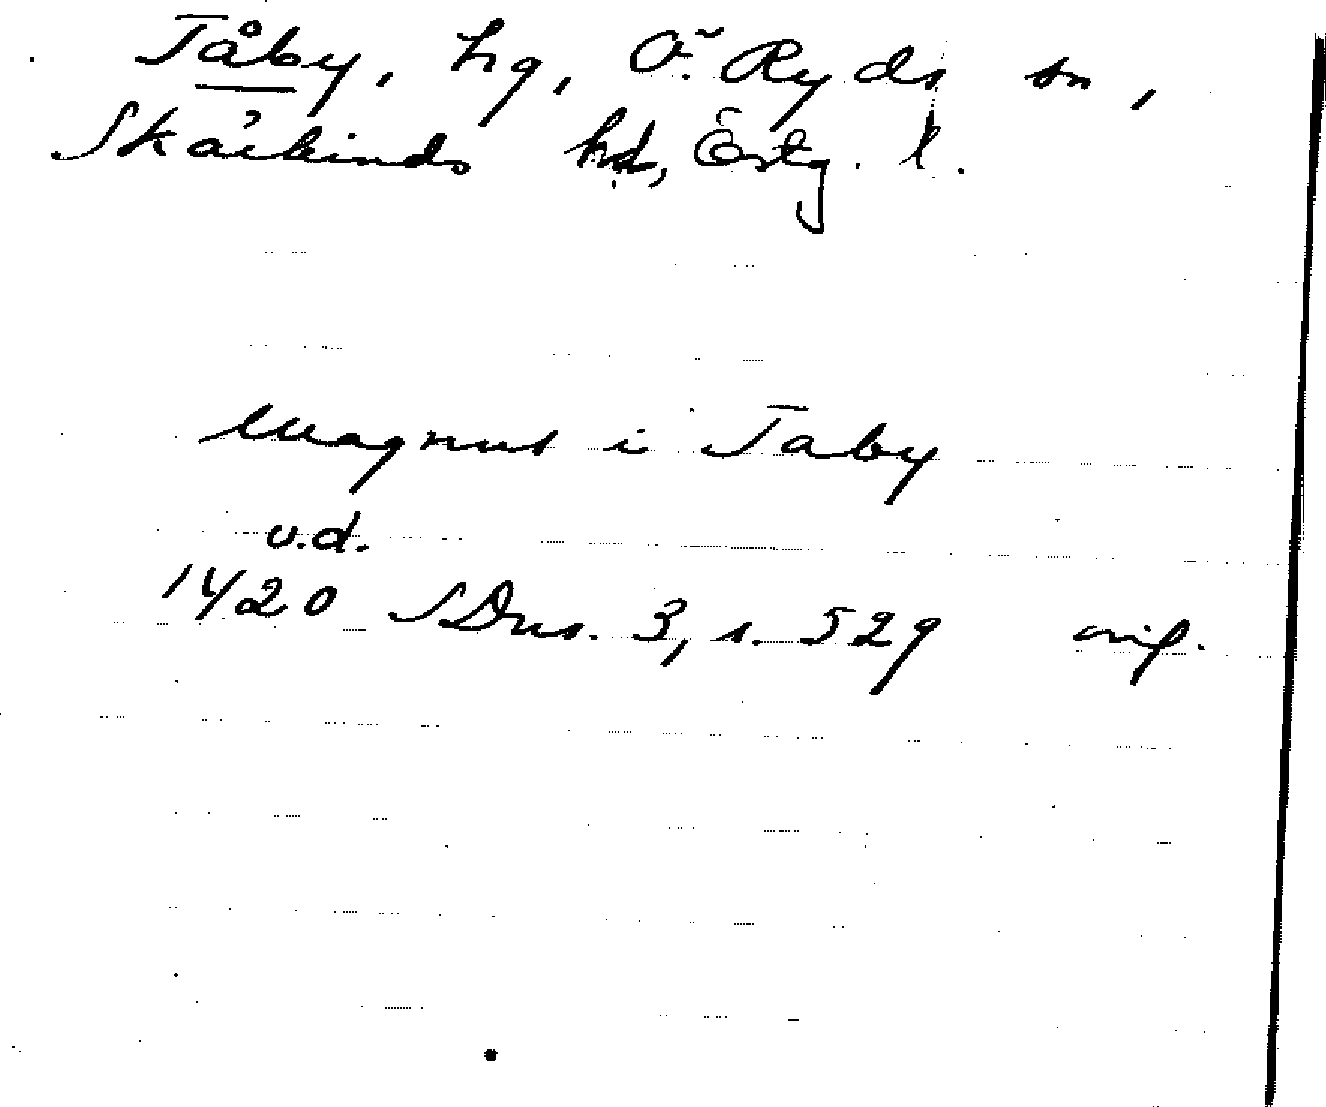 Tåby, hg, Ö. Ryds sn,
Skärkinds hd, Östg. l.
Magnus i Taby
u.d.
1420 SDns. 3, s. 529 orig.